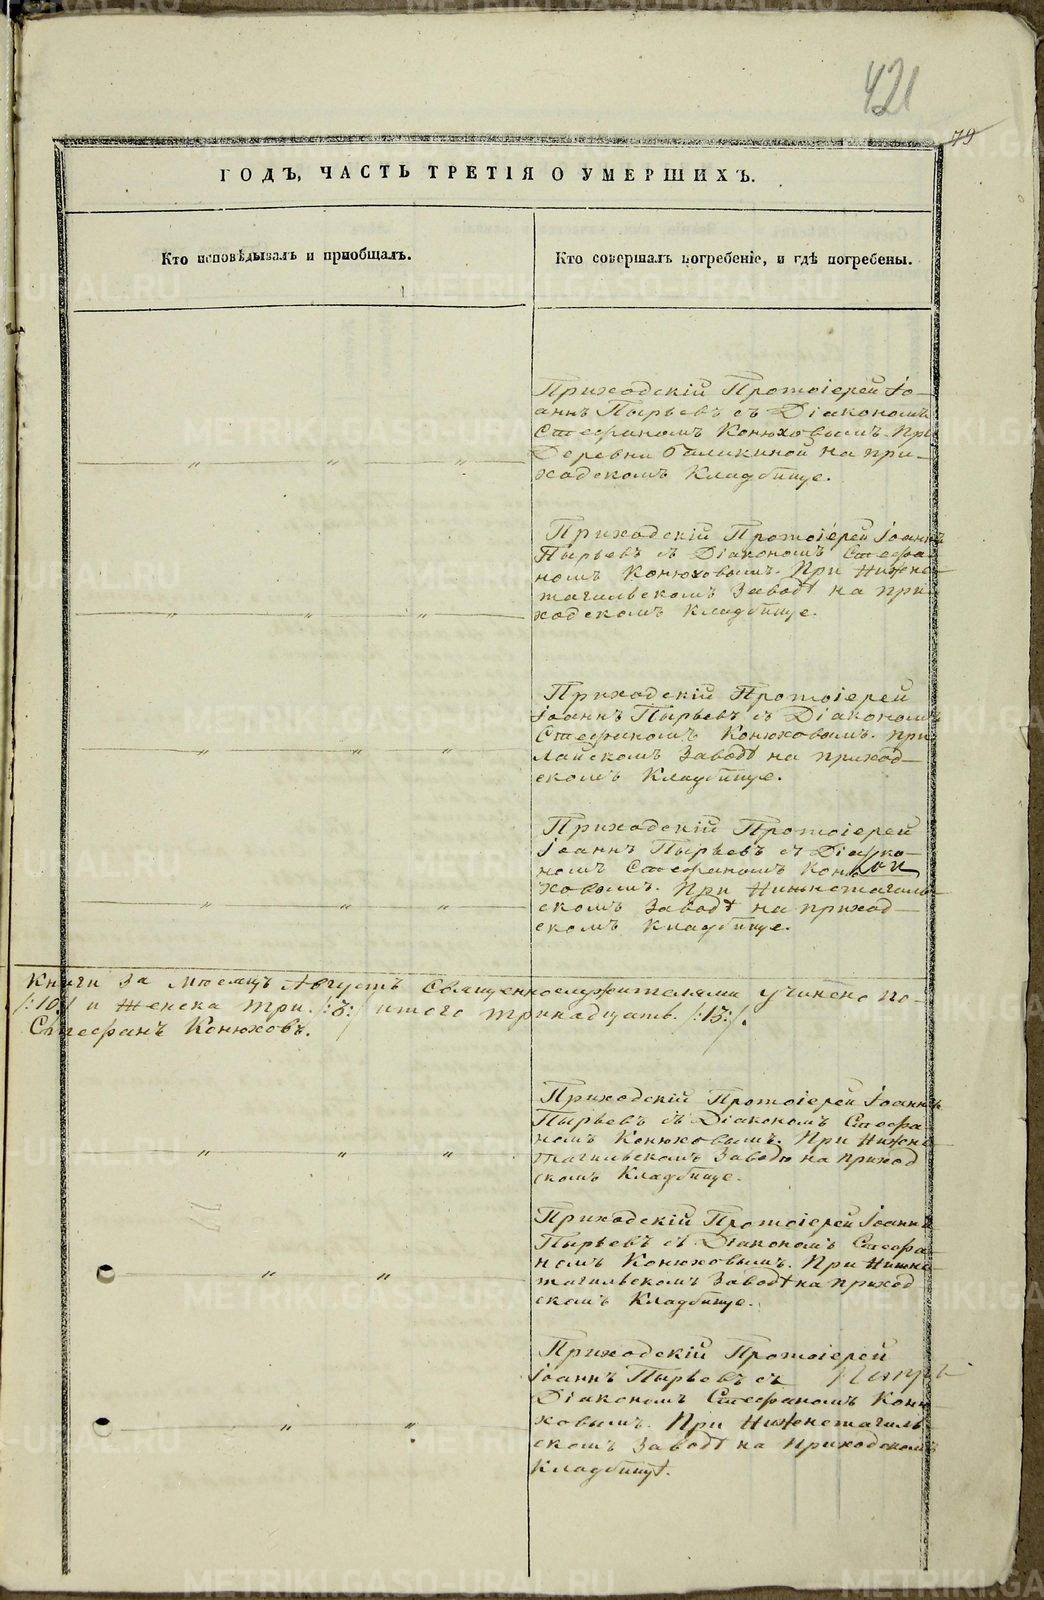 421
79
ГОДЪ, ЧАСТЬ ТРЕТІЯ О УМЕРШИХЪ.
Кто исповѣдывалъ и пріобщалъ.
Кто совершалъ погребеніе, и гдѣ погребены.
Приходскій Протоіерей Іо-
аннъ Пырьевъ съ Діакономъ
Стефаномъ Конюховымъ. При
Деревни Галикиной на при-
ходскомъ Кладбище.
Приходскій Протоіерей Іоаннъ
Пырьевъ съ Діакономъ Стефа-
номъ Конюховымъ. При Нижне-
тагильскомъ Заводѣ на при-
ходскомъ Кладбище.
Приходскій Протоіерей
Іоаннъ Пырьевъ съ Діакономъ
Стефаномъ Конюховымъ. При
Лайскомъ Заводѣ на приход-
скомъ Кладбище.
Приходскій Протоіерей
Іоаннъ Пырьевъ съ Діако-
номъ Стефаномъ Коню-
ховымъ. При Нижнетагиль-
скомъ Заводѣ на приход-
скомъ Кладбище.
Книги за мѣсяцъ Августъ Священнослужителями учинено по-
/:10:/ и женска три. /:3:/ итого тринадцать. /:13:/.
Стефанъ Конюховъ.
Приходскій Протоіерей Іоаннъ
Пырьевъ съ Діакономъ Стефа-
номъ Конюховымъ. При Нижне-
тагильскомъ Заводѣ на приход
скомъ Кладбище.
Приходскій Протоіерей Іоаннъ
Пырьевъ съ Діакономъ Стефа-
номъ Конюховымъ. При Нижне-
тагильскомъ Заводѣ на приход
скомъ Кладбище.
Приходскій Протоіерей
Іоаннъ Пырьевъ съ
Діакономъ Стефаномъ Коню-
ховымъ. При Нижнетагиль-
скомъ Заводѣ на Приходскомъ
Кладбищѣ.
METRIKI.GASO-URAL.RU